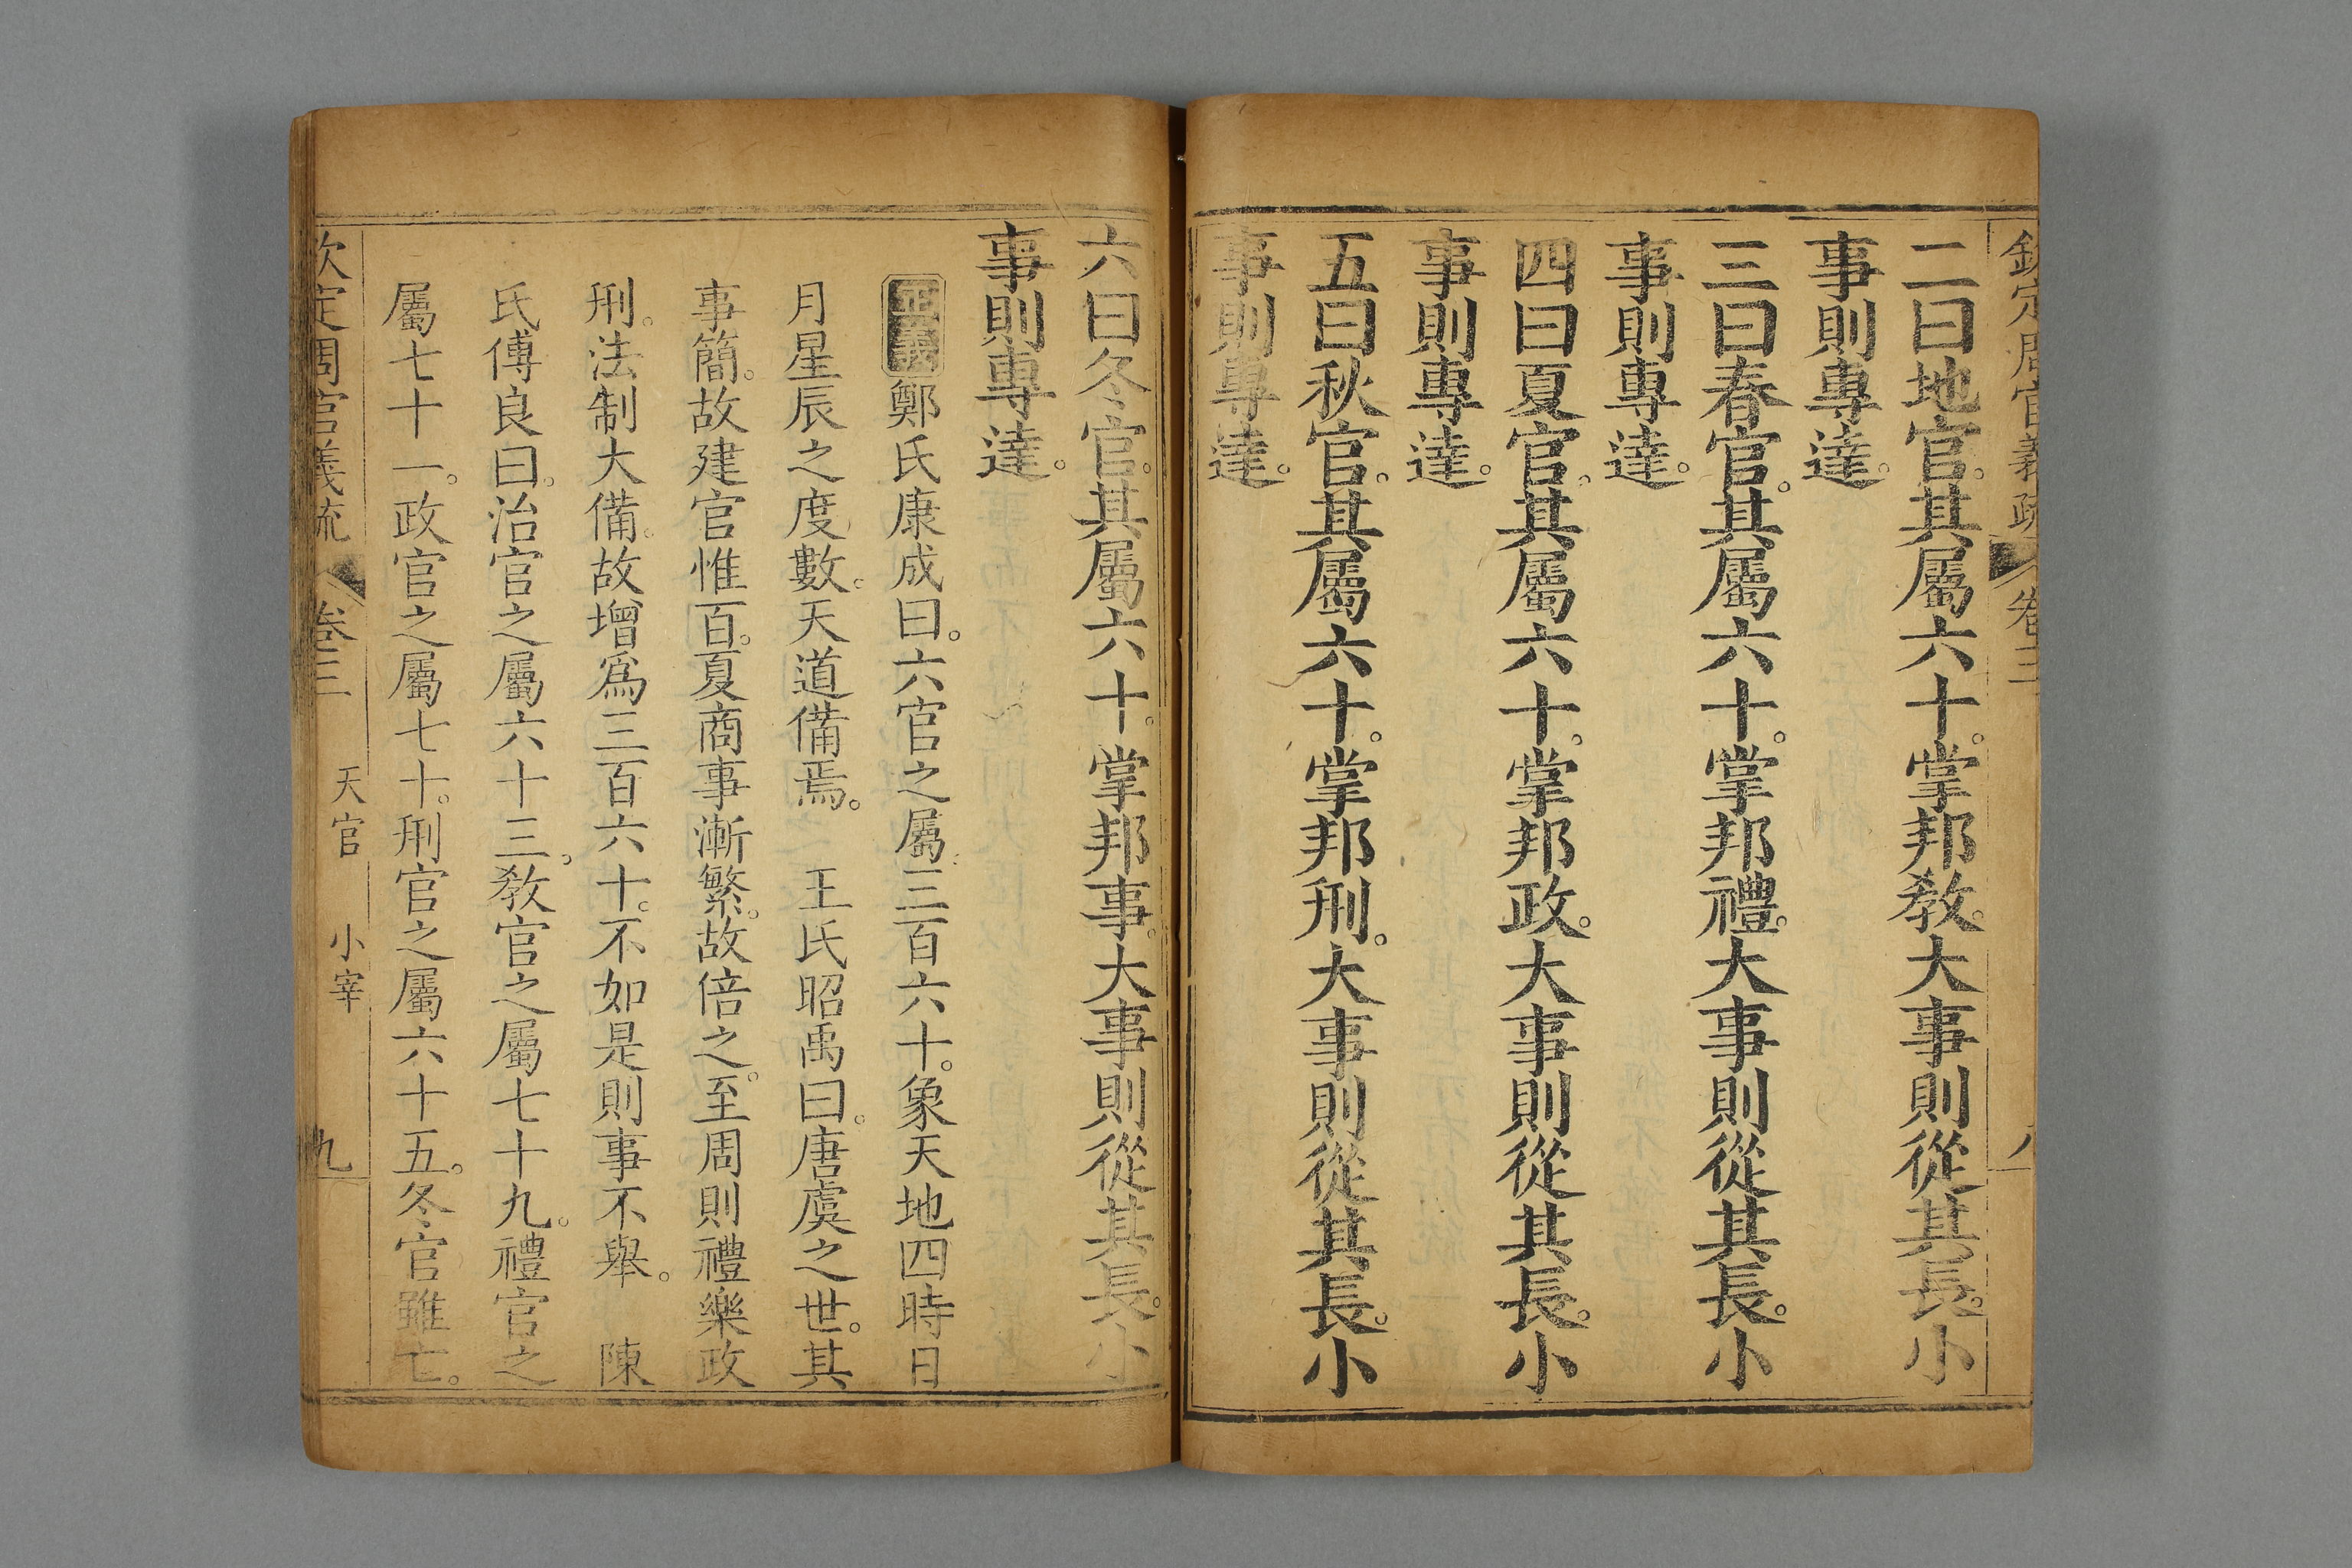 欽定周官義疏 卷三 八
二曰地官。其屬六十。掌邦敎。大事則從其長。小
事則專達。
三曰春官。其屬六十。掌邦禮。大事則從其長。小
事則專達。
四曰夏官。其屬六十。掌邦政。大事則從其長。小
事則專達。
五曰秋官。其屬六十。掌邦刑。大事則從其長。小
事則專達。
六曰冬官。其屬六十。掌邦事。大事則從其長。小
事則專達。
正義 鄭氏康成曰。六官之屬三百六十。象天地四時日
月星辰之度數。天道備焉。 王氏昭禹曰。唐虞之世。其
事簡。故建官惟百。夏商事漸繁。故倍之。至周則禮樂政
刑。法制大備。故增爲三百六十。不如是則事不舉。 陳
氏傅良曰。治官之屬六十三。敎官之屬七十九。禮官之
屬七十一。政官之屬七十。刑官之屬六十五。冬官雖亡。
欽定周官義疏 卷三 天官 小宰 九